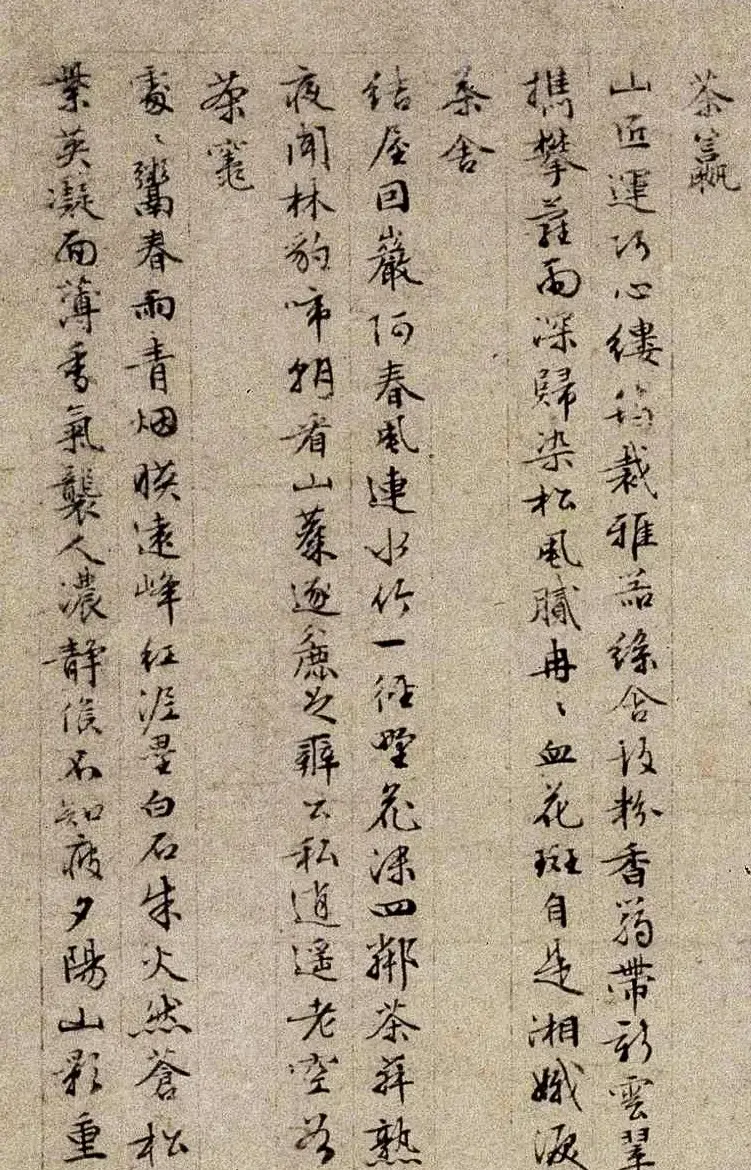 茶籯
山匠運巧心縷筠裁雅器綠含故粉香蒻帶新雲翠
攜攀蘿雨深歸染松風膩冉〻血花斑自是湘娥淚
茶舍
結屋回巖阿春風連水竹一徑野花深四鄰茶荈熟
夜聞林豹啼朝看山麋逐麄足辦公私逍遙老空谷
茶竈
處〻鬻春雨青烟暎遠峰紅泥壘白石朱火然蒼松
紫英凝面薄香氣襲人濃靜候不知疲夕陽山影重